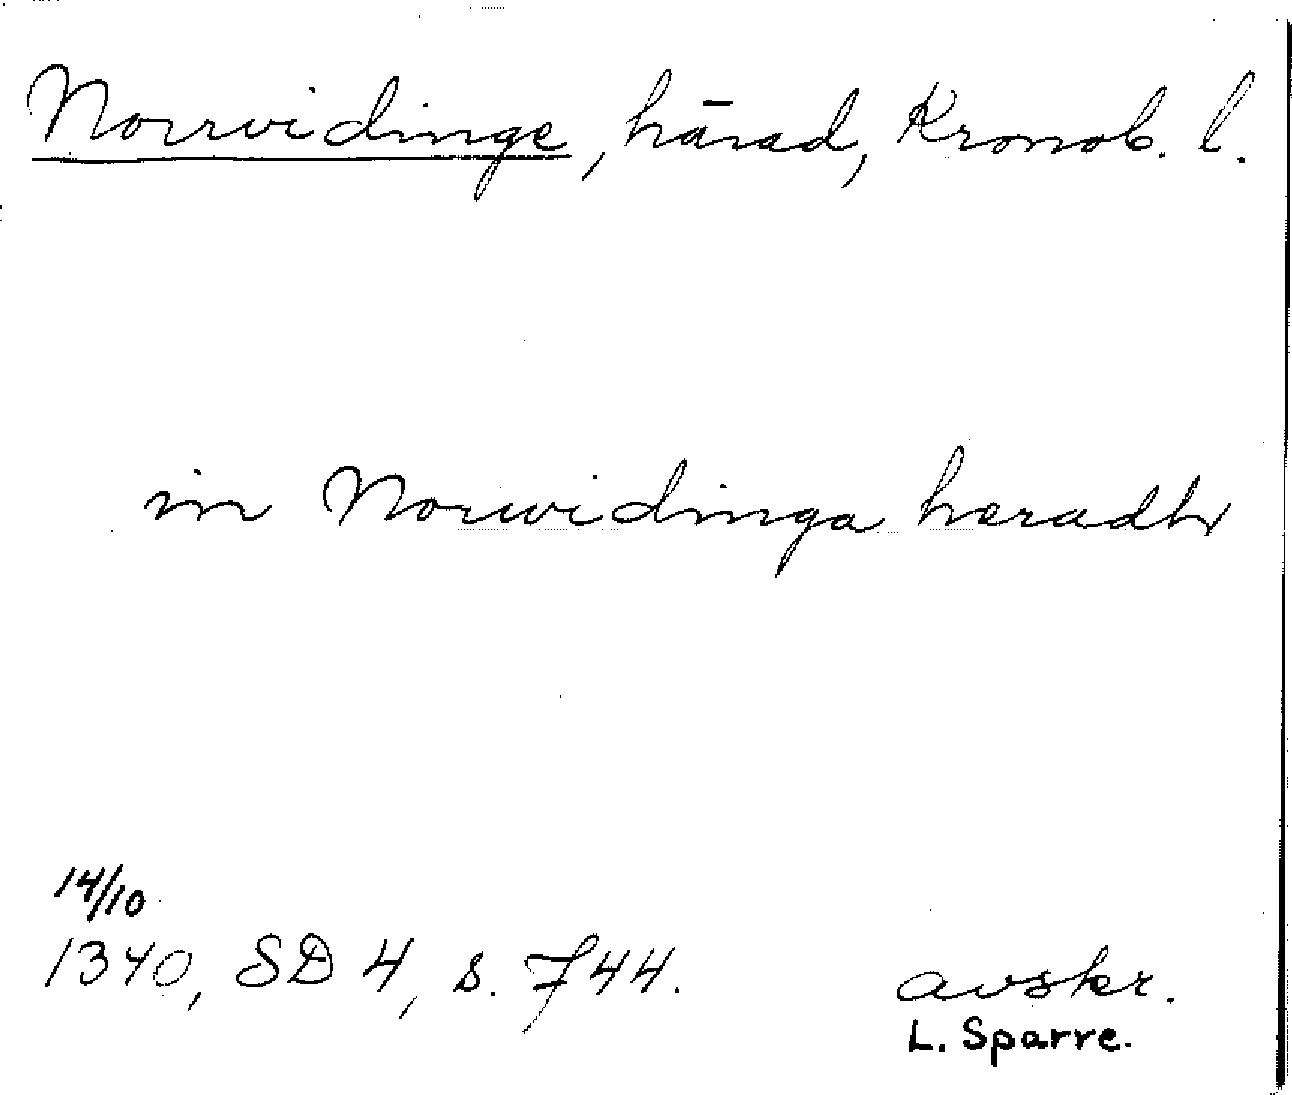 Norrvidinge, härad, Kronob. l.
in Norwidinga hæradh
14/10
1340, SD 4, s. 744.
avskr.
L. Sparre.